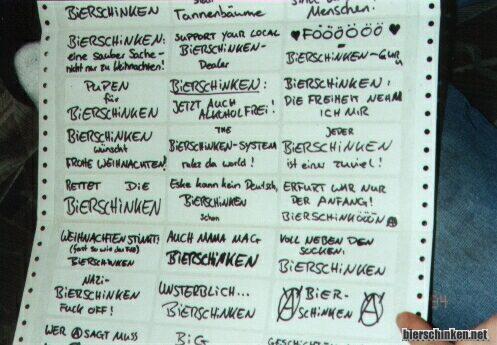 BIERSCHINKEN
Tannenbäume
Menschen!
BIERSCHINKEN:
eine sauber Sache -
nicht nur zu Weihnachten!
SUPPORT YOUR LOCAL
BIERSCHINKEN-
Dealer
♥FÖÖÖÖÖÖ♥
BIERSCHINKEN-GURU
PUPEN
für
BIERSCHINKEN
BIERSCHINKEN:
JETZT AUCH
ALKOHOLFREI!
BIERSCHINKEN:
DIE FREIHEIT NEHM
ICH MIR
BIERSCHINKEN
wünscht
FROHE WEIHNACHTEN!
THE
BIERSCHINKEN-SYSTEM
rokz da world!
JEDER
BIERSCHINKEN
ist einer zuviel!
RETTET DIE
BIERSCHINKEN
Eske kann kein Deutsch,
BIERSCHINKEN
schon
ERFURT WAR NUR
DER ANFANG!
BIERSCHINKÖÖÖN Ⓐ
WEIHNACHTEN STINKT!
(fast so wie der)
BIERSCHINKEN
AUCH MAMA MAG
BIERSCHINKEN
VOLL NEBEN DEN
SOCKEN:
BIERSCHINKEN
NAZI-
BIERSCHINKEN
FUCK OFF!
UNSTERBLICH...
BIERSCHINKEN
Ⓐ BIER- Ⓐ
SCHINKEN
WER Ⓐ SAGT MUSS
BiG
94
bierschinken.net